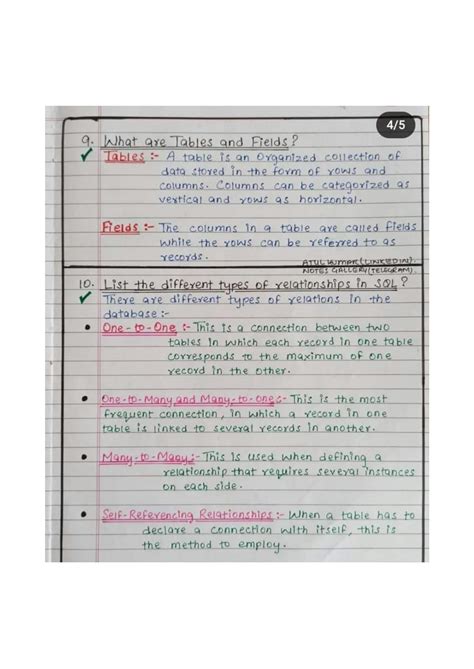 4/5
9. What are Tables and Fields?
Tables :- A table is an organized collection of
data stored in the form of rows and
columns. Columns can be categorized as
vertical and rows as horizontal.
Fields :- The columns in a table are called fields
while the rows can be referred to as
records.
ATUL KUMAR (LINKEDIN).
NOTES GALLERY (TELEGRAM).
10. List the different types of relationships in SQL?
There are different types of relations in the
database :-
• One-to-One :- This is a connection between two
tables in which each record in one table
corresponds to the maximum of one
record in the other.
• One-to-Many and Many-to-one :- This is the most
frequent connection, in which a record in one
table is linked to several records in another.
• Many-to-Many :- This is used when defining a
relationship that requires several instances
on each side.
• Self-Referencing Relationships :- When a table has to
declare a connection with itself, this is
the method to employ.